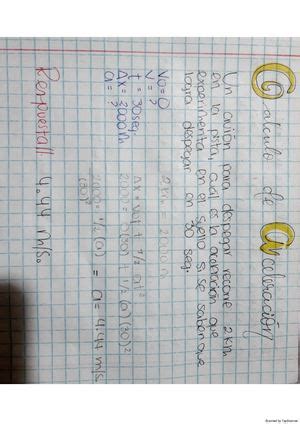 Calculo de Aceleración
Un avión para despegar recorre 2 km
en la pista, cual es la aceleración que
experimenta en el suelo si se sabe que
logra despegar en 30 seg.
2km = 2000m
Vo = 0
V = ?
t = 30seg.
Δx = 2000m
a = ?
2000 = 1/2 (a) = a = 4.44 m/s
Respuesta// 4.44 m/s.
Scanned by CapScanner